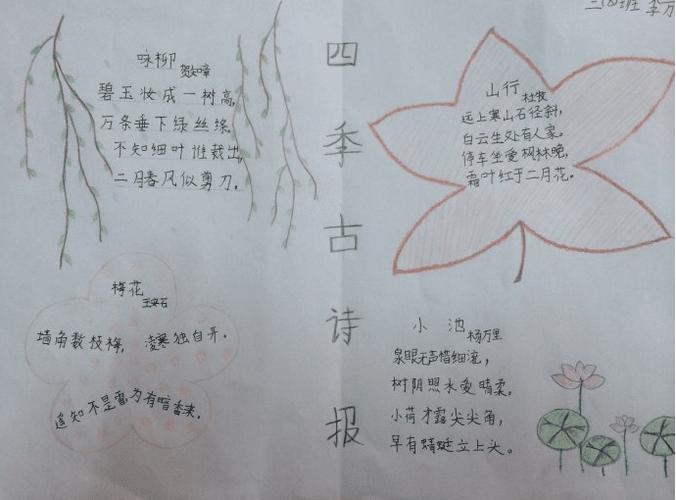 四季古诗报
咏柳 贺知章
碧玉妆成一树高,
万条垂下绿丝绦.
不知细叶谁裁出,
二月春风似剪刀.
班
山行 杜牧
远上寒山石径斜,
白云生处有人家.
停车坐爱枫林晚,
霜叶红于二月花.
梅花 王安石
墙角数枝梅, 凌寒独自开.
遥知不是雪为有暗香来.
小 池 杨万里
泉眼无声惜细流,
树阴照水爱晴柔.
小荷才露尖尖角,
早有蜻蜓立上头.